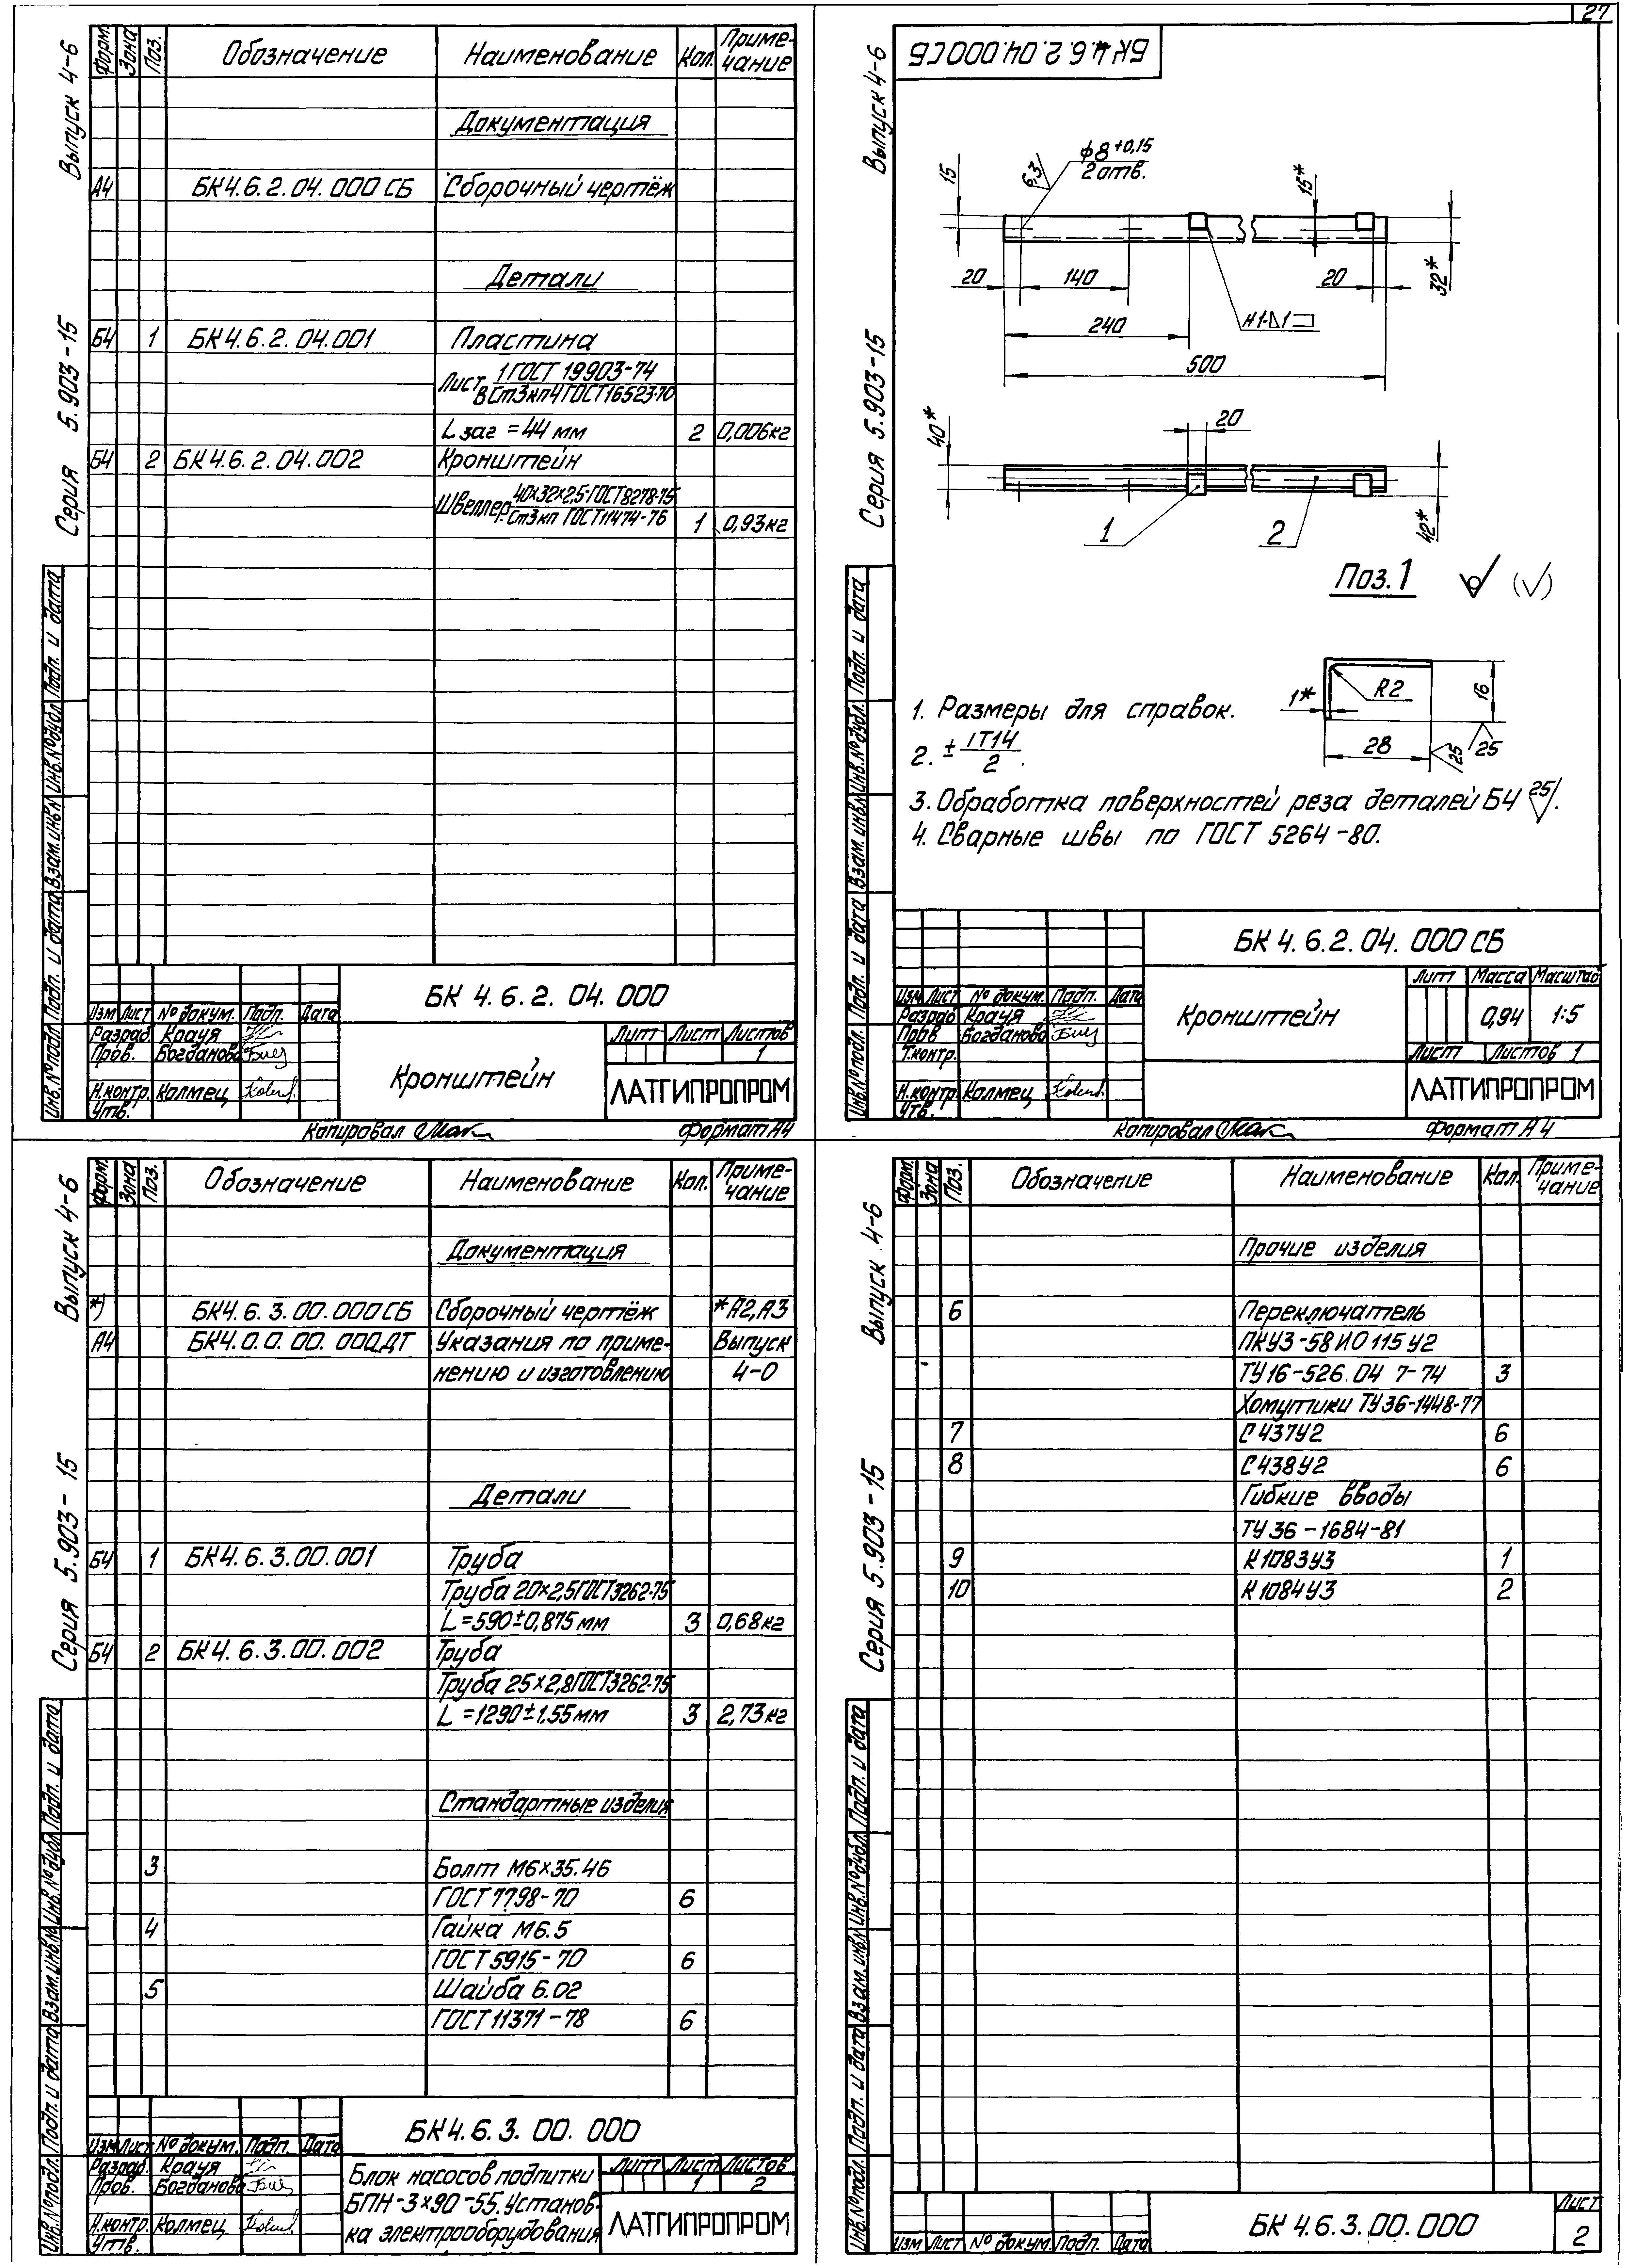 27
Выпуск 4-6
Серия 5.903-15
Форм. Зона Поз. Обозначение Наименование Кол. Приме-
чание
Документация
А4 БК4.6.2.04.000СБ Сборочный чертёж
Детали
Б4 1 БК4.6.2.04.001 Пластина
Лист 1 ГОСТ 19903-74
ВСт3кп4ГОСТ16523-70
L заг = 44 мм 2 0,006кг
Б4 2 БК4.6.2.04.002 Кронштейн
Швеллер 40×32×2,5 ГОСТ8278-75
Ст3кп ГОСТ11474-76
1 0,93кг
Инв.№подл. Подп. и дата Взам.инв.№ Инв.№дубл. Подп. и дата
БК 4.6.2.04.000
Изм Лист № докум. Подп. Дата
Разраб. Крауя
Пров. Богданова
Н.контр. Колмец
Утв.
Кронштейн
Лит Лист Листов
1
ЛАТГИПРОПРОМ
Копировал Формат А4
Выпуск 4-6
Серия 5.903-15
БК4.6.2.04.000СБ
15
6.3
ф8+0,15
2 отв.
15*
32*
20
140
20
240
Н1-△1
500
40*
20
42*
1
2
Поз.1
(√)
1*
R2
16
28
25
25
1. Размеры для справок.
2. ± IT14
2 .
3. Обработка поверхностей реза деталей БЧ 25.
4. Сварные швы по ГОСТ 5264-80.
Инв.№подл. Подп. и дата Взам.инв.№ Инв.№дубл. Подп. и дата
БК 4.6.2.04.000СБ
Изм Лист № докум. Подп. Дата
Разраб Крауя
Пров Богданова
Т.контр.
Н.контр. Колмец
Утв.
Кронштейн
Лит Масса Масштаб
0,94 1:5
Лист Листов 1
ЛАТГИПРОПРОМ
Копировал Формат А4
Выпуск 4-6
Серия 5.903-15
Форм. Зона Поз. Обозначение Наименование Кол. Приме-
чание
Документация
*) БК4.6.3.00.000СБ Сборочный чертёж *А2,А3
А4 БК4.0.0.00.000ДТ Указания по приме- Выпуск
нению и изготовлению 4-0
Детали
Б4 1 БК4.6.3.00.001 Труба
Труба 20×2,5ГОСТ3262-75
L=590±0,875мм 3 0,68кг
Б4 2 БК4.6.3.00.002 Труба
Труба 25×2,8ГОСТ3262-75
L=1290±1,55мм 3 2,73кг
Стандартные изделия
3 Болт М6×35.46
ГОСТ7798-70 6
4 Гайка М6.5
ГОСТ5915-70 6
5 Шайба 6.02
ГОСТ11371-78 6
Инв.№подл. Подп. и дата Взам.инв.№ Инв.№дубл. Подп. и дата
БК4.6.3.00.000
Изм Лист № докум. Подп. Дата
Разраб. Крауя
Пров. Богданова
Н.контр. Колмец
Утв.
Блок насосов подпитки
БПН-3×90-55. Установ-
ка электрооборудования
Лит Лист Листов
1 2
ЛАТГИПРОПРОМ
Выпуск 4-6
Серия 5.903-15
Форм. Зона Поз. Обозначение Наименование Кол. Приме-
чание
Прочие изделия
6 Переключатель
ПКУ3-58И0115У2
ТУ16-526.04 7-74 3
Хомутики ТУ36-1448-77
7 С437У2 6
8 С438У2 6
Гибкие вводы
ТУ36-1684-81
9 К1083У3 1
10 К1084У3 2
Инв.№подл. Подп. и дата Взам.инв.№ Инв.№дубл. Подп. и дата
Изм Лист № докум. Подп. Дата
БК 4.6.3.00.000
Лист
2